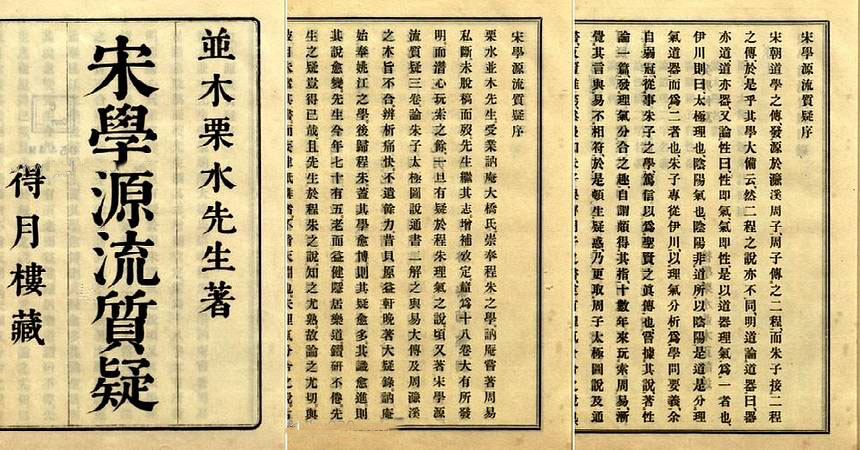 並木栗水先生著
宋學源流質疑
得月樓藏
宋學源流質疑序
栗水並木先生受業訥庵大橋氏崇奉程朱之學訥庵嘗著周易
私斷未脫稿而歿先生繼其志增補攷定釐爲十八卷大有所發
明而潛心玩索之餘一旦有疑於程朱理氣之說頃又著宋學源
流質疑三卷論朱子太極圖說通書二解之與易大傳及周濂溪
之本旨不合辨析痛快不遺餘力昔貝原益軒晚著大疑錄訥庵
始奉姚江之學後歸程朱蓋其學愈博則其疑愈多其識愈進則
其說愈變先生今年七十有五老而益健隱居樂道鑽研不倦先
生之疑豈得已哉且先生於程朱之說知之尤熟故論之尤切與
宋學源流質疑序
宋朝道學之傳發源於濂溪周子、周子傳之二程、而朱子接二程
之傳、於是乎其學大備云、然二程之說亦不同、明道論道器曰、器
亦道、道亦器、又論性曰、性即氣、氣即性、是以道器理氣爲一者也、
伊川則曰、太極理也、陰陽氣也、陰陽非道、所以陰陽是道、是分理
氣道器而爲二者也、朱子專從伊川、以理氣分析爲學問要義、余
自弱冠從事朱子之學、篤信以爲聖賢之眞傳也、嘗據其說、著性
論一篇、發理氣分合之趣、自謂頗得其指、十數年來玩索周易、漸
覺其言與易不相符、於是頓生疑惑、乃更取周子太極圖說及通